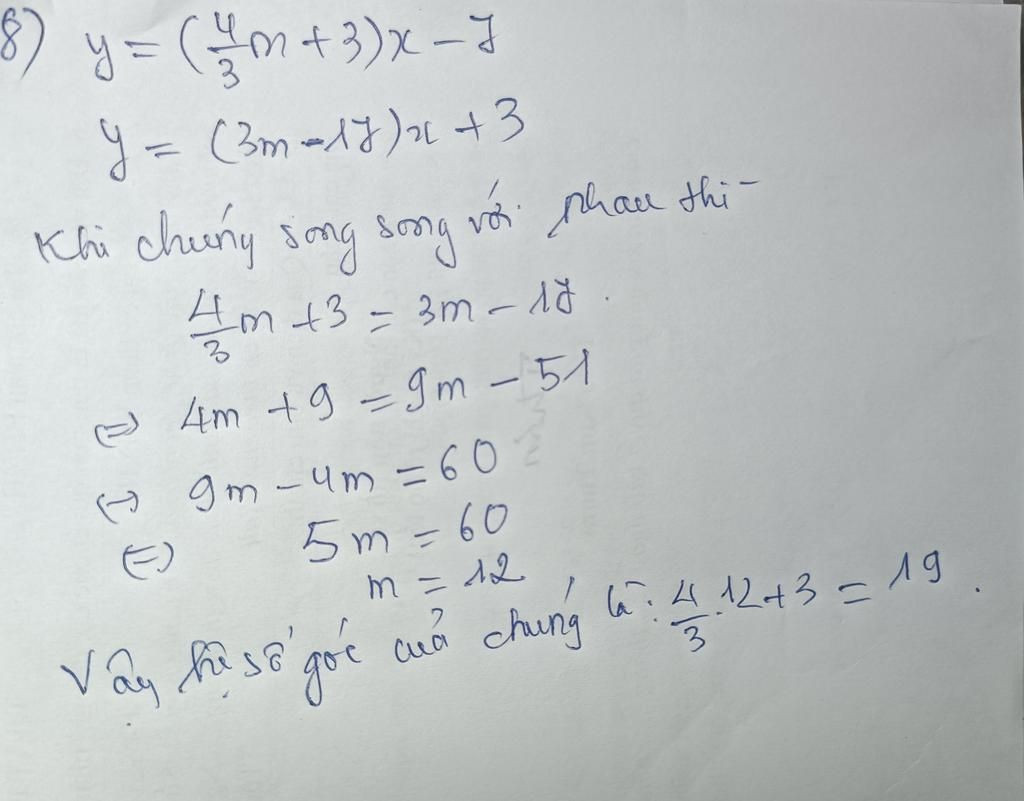 8) y = (4/3 m + 3)x - 7
y = (3m - 17)x + 3
Khi chúng song song với nhau thì
4/3 m + 3 = 3m - 17.
⇔ 4m + 9 = 9m - 51
⇔ 9m - 4m = 60
⇔ 5m = 60
m = 12
Vậy hệ số góc của chúng là: 4/3 . 12 + 3 = 19.